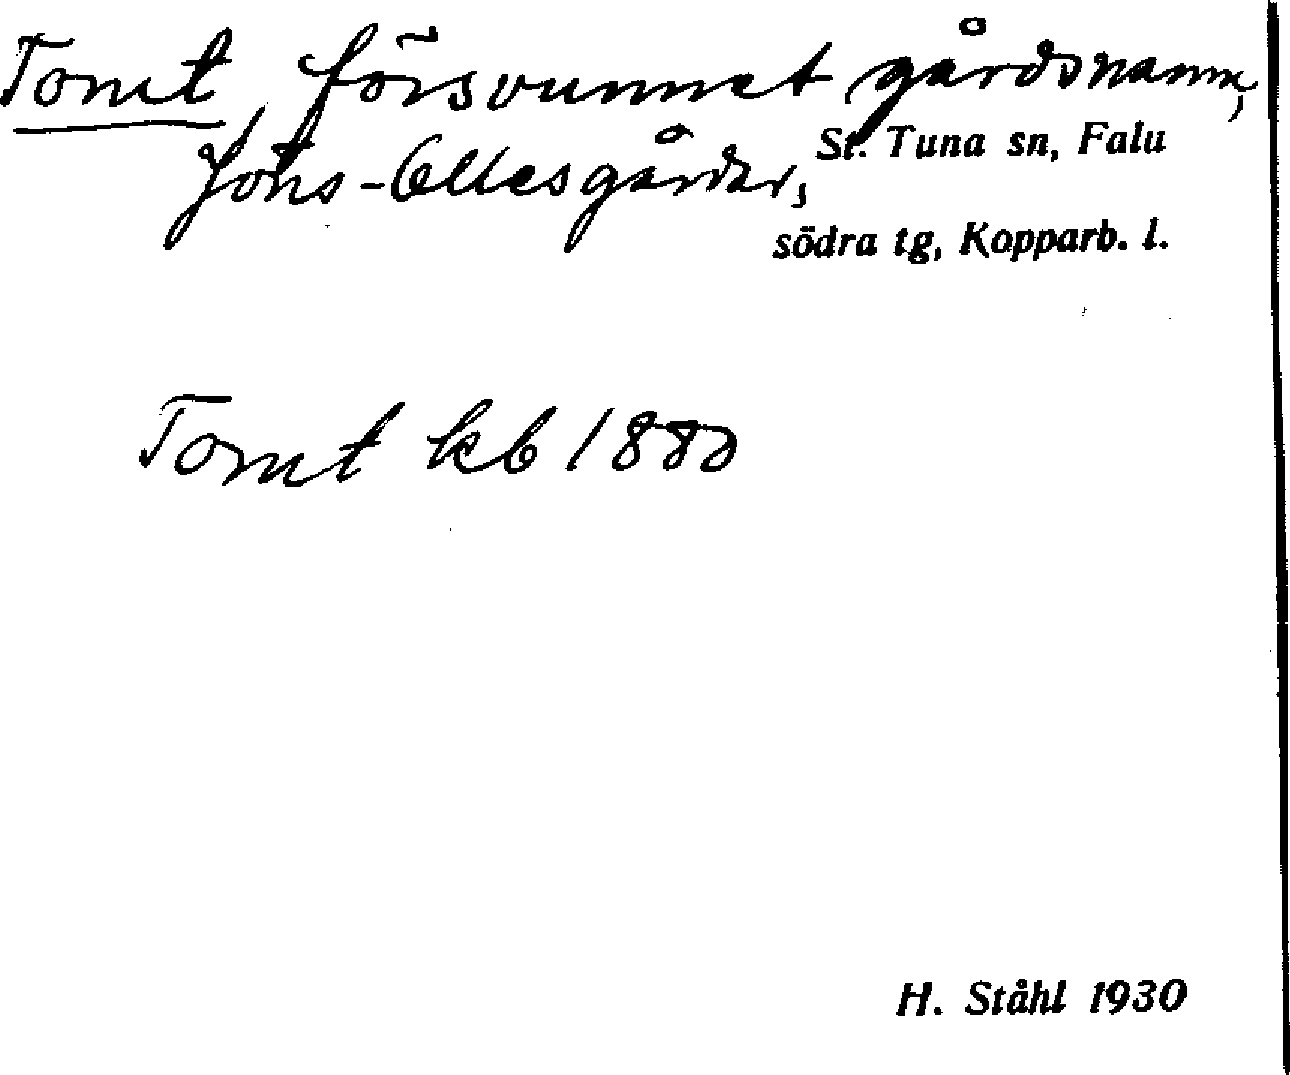 Tomt, försvunnet gårdsnamn,
Jöns-Ollesgårdar, St. Tuna sn, Falu
södra tg, Kopparb. l.
Tomt kb 1880
H. Ståhl 1930